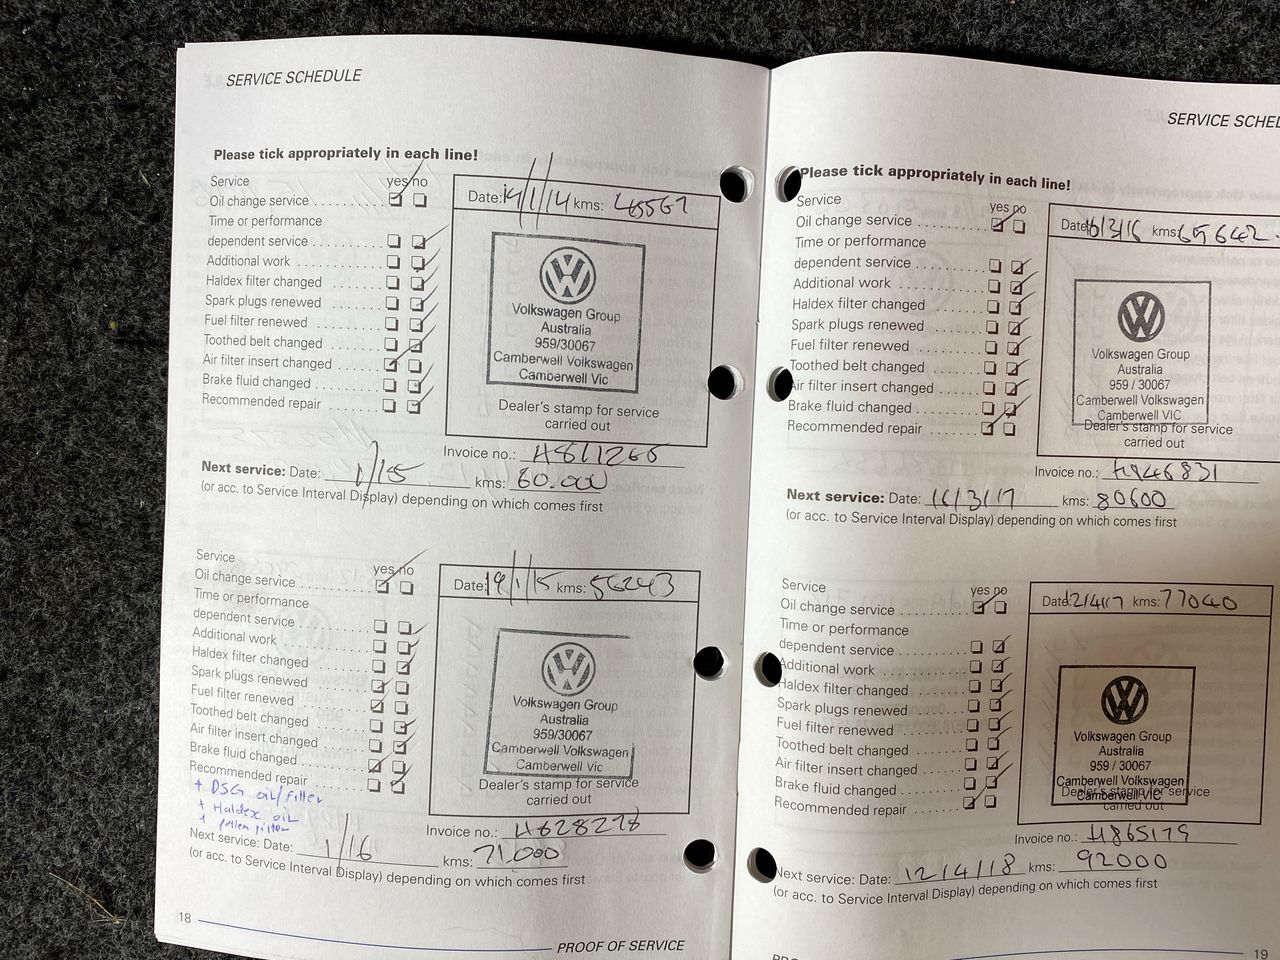 SERVICE SCHEDULE
Please tick appropriately in each line!
Service yes no
Oil change service
Time or performance
dependent service
Additional work
Haldex filter changed
Spark plugs renewed
Fuel filter renewed
Toothed belt changed
Air filter insert changed
Brake fluid changed
Recommended repair
Date: 14/1/14 kms: 45567
Volkswagen Group
Australia
959/30067
Camberwell Volkswagen
Camberwell Vic
Dealer's stamp for service
carried out
Invoice no.:
Next service: Date: 1/15 kms: 60.000
(or acc. to Service Interval Display) depending on which comes first
Service yes no
Oil change service
Time or performance
dependent service
Additional work
Haldex filter changed
Spark plugs renewed
Fuel filter renewed
Toothed belt changed
Air filter insert changed
Brake fluid changed
Recommended repair
+ DSG oil/filter
+ Haldex oil
+ pollen filter
Date: 19/1/15 kms: 56243
Volkswagen Group
Australia
959/30067
Camberwell Volkswagen
Camberwell Vic
Dealer's stamp for service
carried out
Invoice no.:
Next service: Date: 1/16 kms: 71.000
(or acc. to Service Interval Display) depending on which comes first
18
PROOF OF SERVICE
SERVICE SCHE
Please tick appropriately in each line!
Service yes no
Oil change service
Time or performance
dependent service
Additional work
Haldex filter changed
Spark plugs renewed
Fuel filter renewed
Toothed belt changed
Air filter insert changed
Brake fluid changed
Recommended repair
Date: 16/3/16 kms: 65642
Volkswagen Group
Australia
959 / 30067
Camberwell Volkswagen
Camberwell VIC
Dealer's stamp for service
carried out
Invoice no.:
Next service: Date: 16/3/17 kms: 80600
(or acc. to Service Interval Display) depending on which comes first
Service yes no
Oil change service
Time or performance
dependent service
Additional work
Haldex filter changed
Spark plugs renewed
Fuel filter renewed
Toothed belt changed
Air filter insert changed
Brake fluid changed
Recommended repair
Date: 12/4/17 kms: 77040
Volkswagen Group
Australia
959 / 30067
Camberwell Volkswagen
Camberwell VIC
Dealer's stamp for service
carried out
Invoice no.: H865179
Next service: Date: 12/4/18 kms: 92000
(or acc. to Service Interval Display) depending on which comes first
19